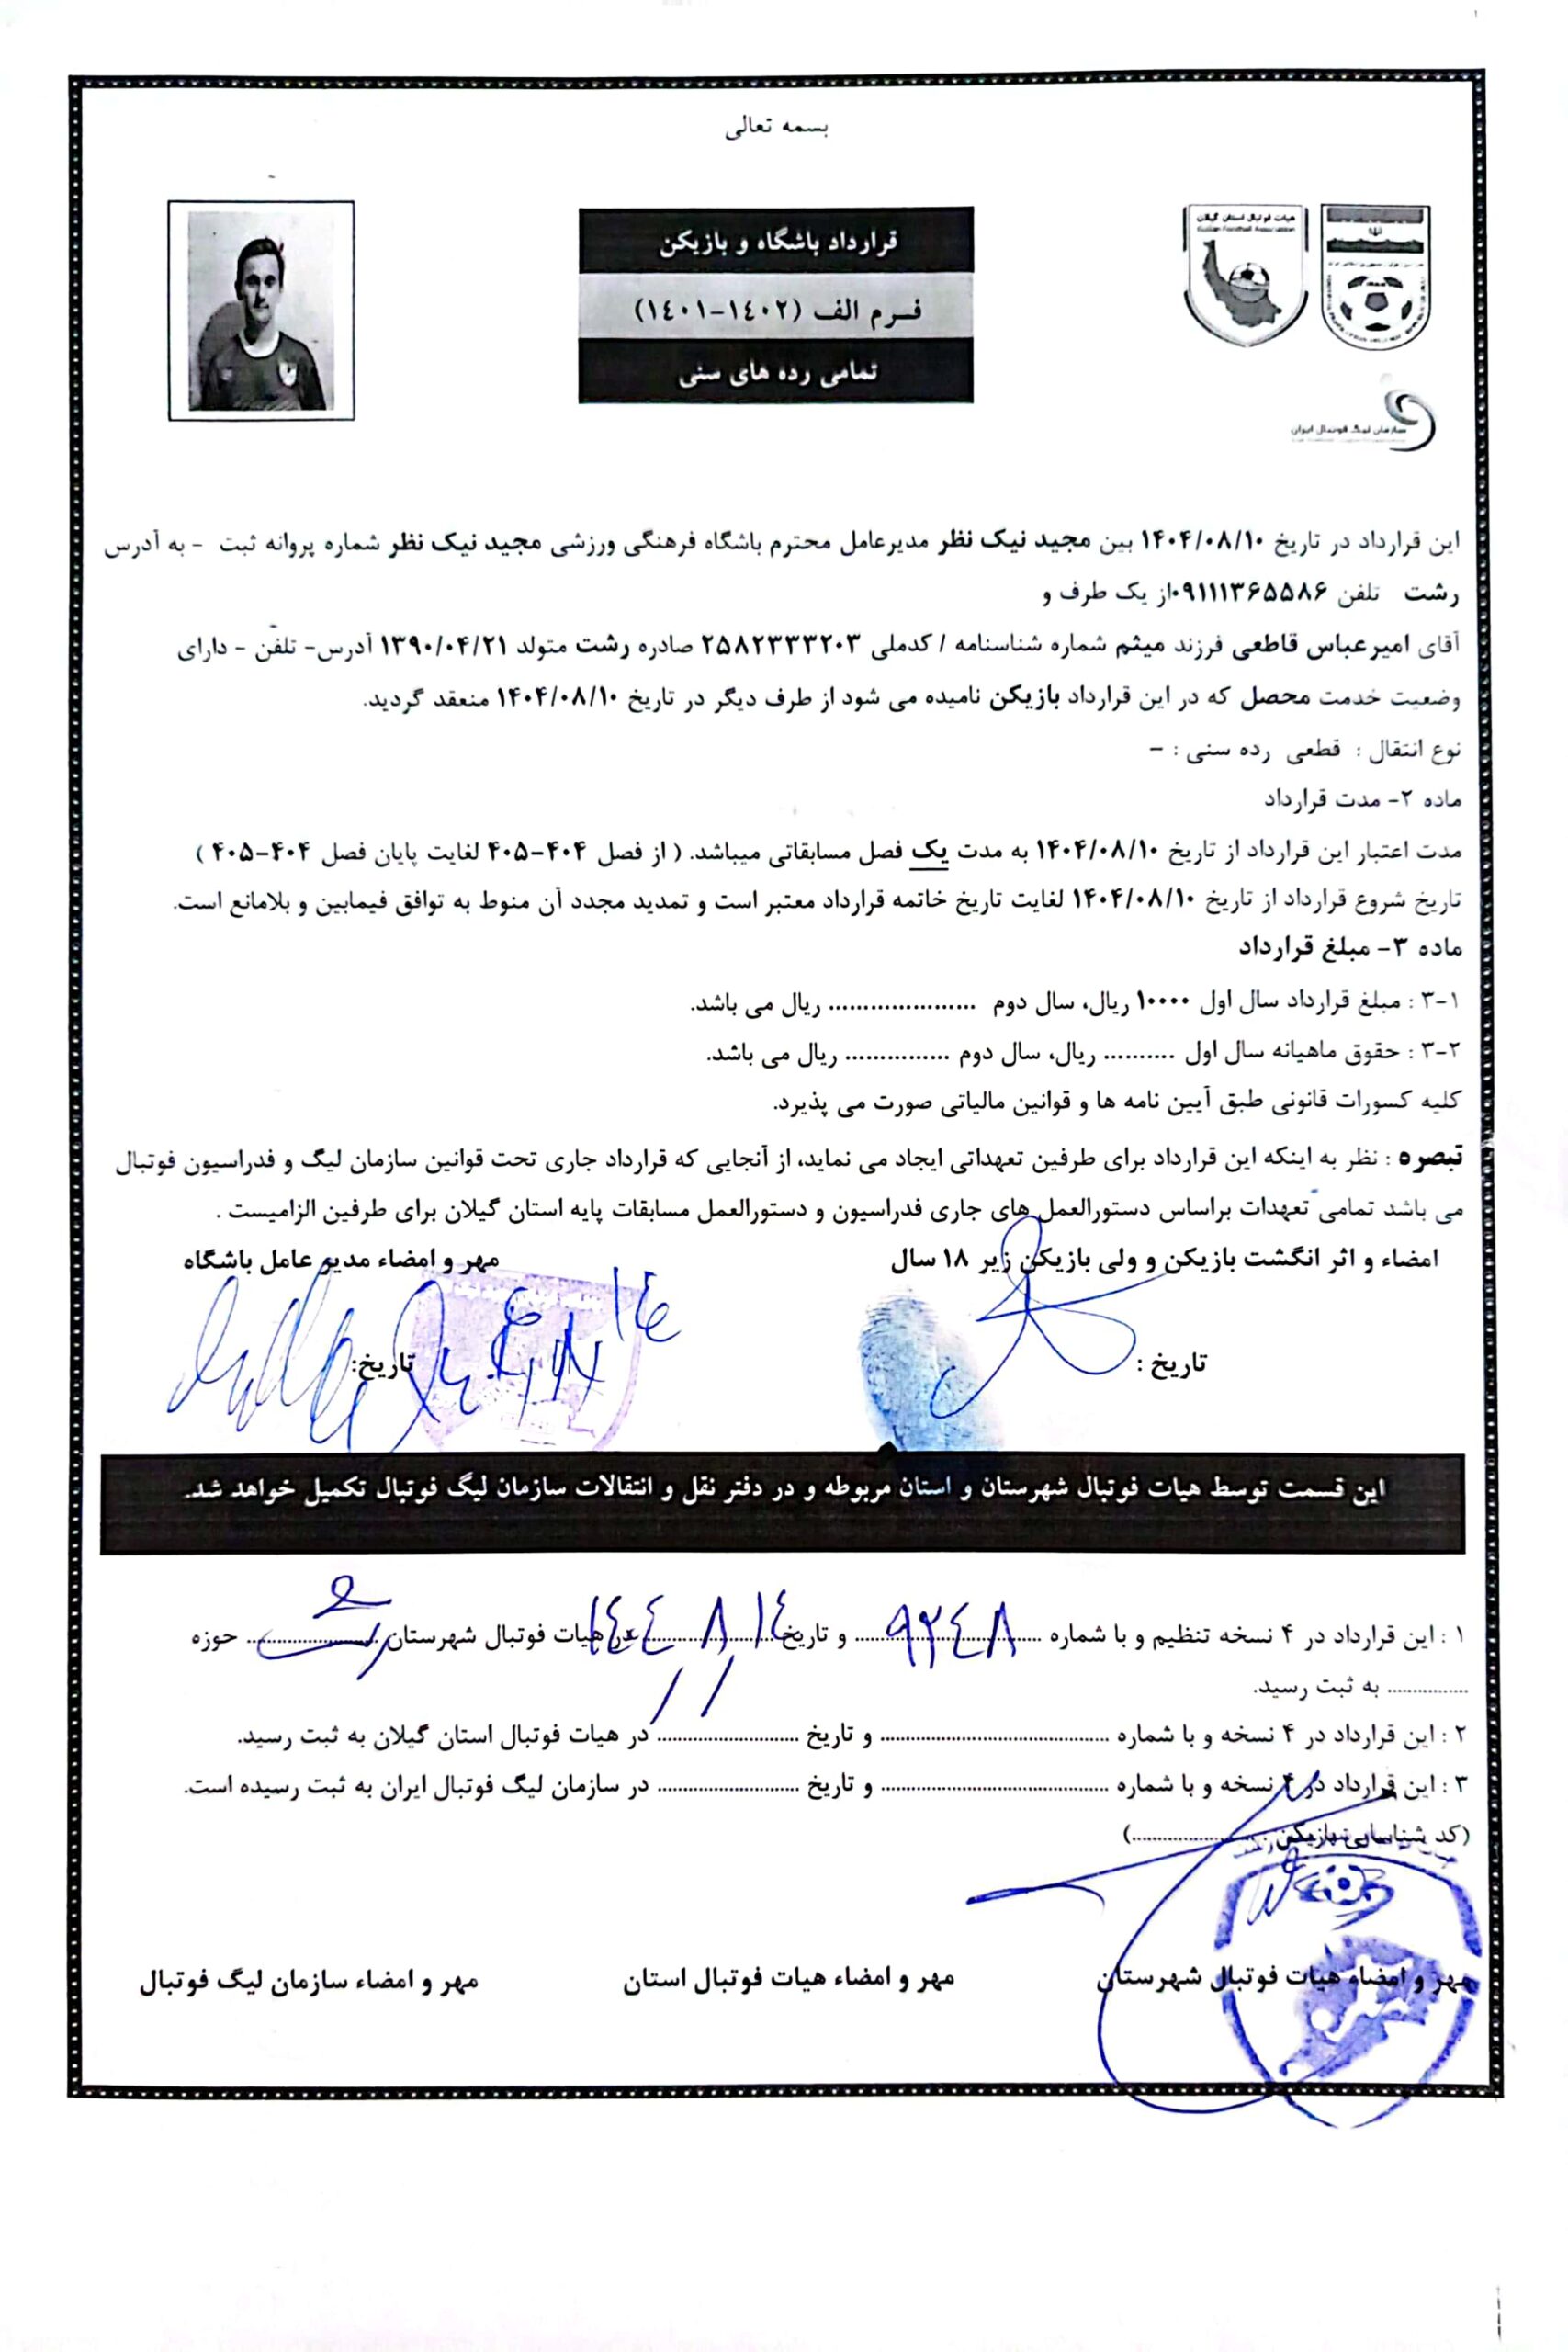 بسمه تعالی
هیات فوتبال استان گیلان
قرارداد باشگاه و بازیکن
فــرم الف (۱٤۰۲-۱٤۰۱)
تمامی رده های سنی
سازمان لیگ فوتبال ایران
این قرارداد در تاریخ ۱۴۰۴/۰۸/۱۰ بین مجید نیک نظر مدیرعامل محترم باشگاه فرهنگی ورزشی مجید نیک نظر شماره پروانه ثبت - به آدرس
رشت تلفن ۰۹۱۱۱۳۶۵۵۸۶از یک طرف و
آقای امیرعباس قاطعی فرزند میثم شماره شناسنامه / کدملی ۲۵۸۲۳۳۳۲۰۳ صادره رشت متولد ۱۳۹۰/۰۴/۲۱ آدرس- تلفن - دارای
وضعیت خدمت محصل که در این قرارداد بازیکن نامیده می شود از طرف دیگر در تاریخ ۱۴۰۴/۰۸/۱۰ منعقد گردید.
نوع انتقال : قطعی رده سنی : -
ماده ۲- مدت قرارداد
مدت اعتبار این قرارداد از تاریخ ۱۴۰۴/۰۸/۱۰ به مدت یک فصل مسابقاتی میباشد. ( از فصل ۴۰۴-۴۰۵ لغایت پایان فصل ۴۰۴-۴۰۵ )
تاریخ شروع قرارداد از تاریخ ۱۴۰۴/۰۸/۱۰ لغایت تاریخ خاتمه قرارداد معتبر است و تمدید مجدد آن منوط به توافق فیمابین و بلامانع است.
ماده ۳- مبلغ قرارداد
۳-۱ : مبلغ قرارداد سال اول ۱۰۰۰۰ ریال، سال دوم ..................... ریال می باشد.
۳-۲ : حقوق ماهیانه سال اول .......... ریال، سال دوم ............... ریال می باشد.
کلیه کسورات قانونی طبق آیین نامه ها و قوانین مالیاتی صورت می پذیرد.
تبصره : نظر به اینکه این قرارداد برای طرفین تعهداتی ایجاد می نماید، از آنجایی که قرارداد جاری تحت قوانین سازمان لیگ و فدراسیون فوتبال
می باشد تمامی تعهدات براساس دستورالعمل های جاری فدراسیون و دستورالعمل مسابقات پایه استان گیلان برای طرفین الزامیست .
امضاء و اثر انگشت بازیکن و ولی بازیکن زیر ۱۸ سال مهر و امضاء مدیر عامل باشگاه
تاریخ : تاریخ:
این قسمت توسط هیات فوتبال شهرستان و استان مربوطه و در دفتر نقل و انتقالات سازمان لیگ فوتبال تکمیل خواهد شد.
۱ : این قرارداد در ۴ نسخه تنظیم و با شماره ۹۲٤۸ و تاریخ ۱٤/۸/۱٤۰٤ در هیات فوتبال شهرستان رشت حوزه
............... به ثبت رسید.
۲ : این قرارداد در ۴ نسخه و با شماره .......................................... و تاریخ .......................... در هیات فوتبال استان گیلان به ثبت رسید.
۳ : این قرارداد در ۴ نسخه و با شماره .......................................... و تاریخ .......................... در سازمان لیگ فوتبال ایران به ثبت رسیده است.
(کد شناسایی بازیکن : ......................)
مهر و امضاء هیات فوتبال شهرستان مهر و امضاء هیات فوتبال استان مهر و امضاء سازمان لیگ فوتبال